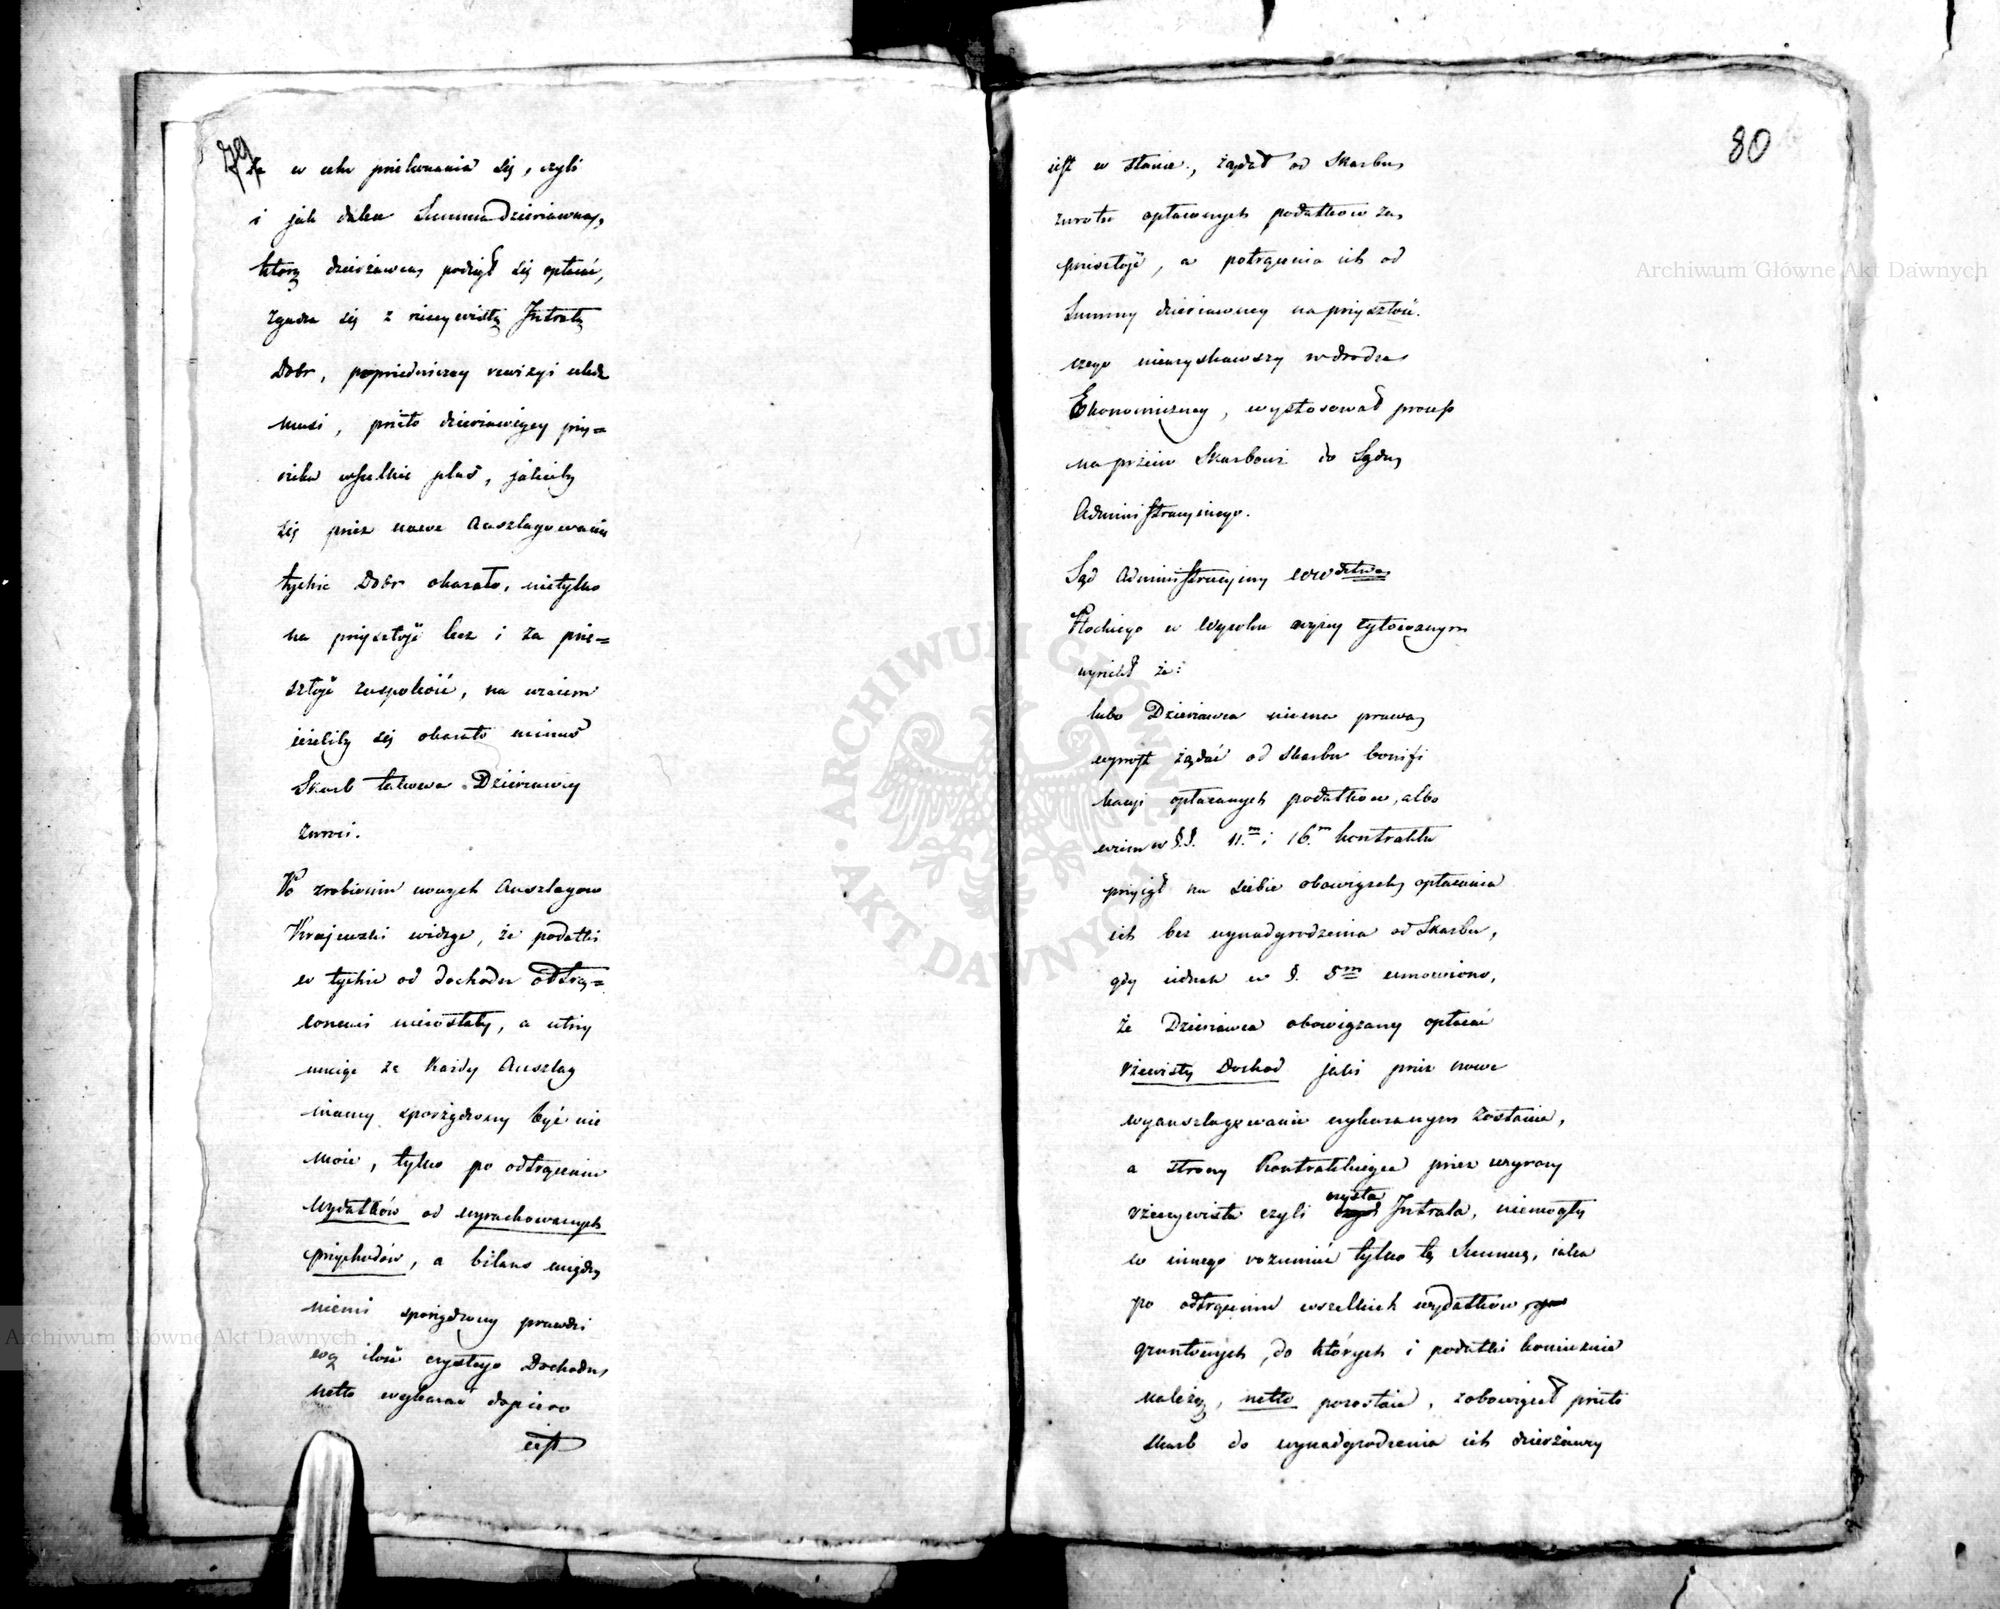 79
że w celu przekonania się, czyli
i jak dalece Summa Dzierzawna,
którą dzierżawca podiął się opłacać,
zgadza się z rzeczywistą Intratą
Dobr, poprzedniczey rewizyi uledz
musi, przeto dzierzawiący przy=
rzeka wszelkie plus, jakieby
się przez nowe Anszlagowanie
tychże Dobr okazało, nietylko
na przyszłość lecz i za prze=
szłość zaspokoić, na wzaiem
ieżeliby się okazało minus
Skarb takowe Dzierzawcy
zwróci.
Po zrobieniu nowych Anszlagow
Kraiewski widząc, że podatki
w tychże od dochodu odtrą=
conemi niezostały, a utrzy
muiąc że każdy Anszlag
inaczy sporządzony być nie
może, tylko po odtrąceniu
wydatków od wyrachowanych
przychodów, a bilans między
niemi sporządzony prawdzi
wą ilość czystego Dochodu
netto wykazać dopiero
iest
80
iest w stanie, żądał od Skarbu
zwrotu opłaconych podatkow za
przeszłość, a potrącenia ich od
Summy dzierzawney na przyszłość.
czego nieuzyskawszy w drodze
Ekonomiczney, wystosował process
naprzeciw Skarbowi do Sądu
Administracyinego.
Sąd Administracyiny Wwdztwa
Płockiego w Wyroku wyżey cytowanym
wyrzekł że:
lubo Dzierzawca niema prawa
wprost żądać od Skarbu bonifi
kacyi opłacanych podatkow, albo
wiem w §.§. 11.m i 16.m kontraktu
przyiął na siebie obowiązek opłacania
ich bez wynadgrodzenia od Skarbu,
gdy iednak w §. 5m umowiono,
że Dzierzawca obowiązany opłacać
rzewisty Dochod jaki przez nowe
wyanszlagowanie wykazanym zostanie,
a strony Kontraktuiące przez wyrazy
rzeczywista czyli czysta Intrata, niemogły
co innego rozumieć tylko tę Summę, iaka
po odtrąceniu wszelkich wydatkow
gruntowych, do których i podatki koniecznie
należą, netto pozostaie, zobowiązał przeto
Skarb do wynadgrodzenia ich dzierżawcy
Archiwum Główne Akt Dawnych
Archiwum Główne Akt Dawnych
ARCHIWUM GŁÓWNE AKT DAWNYCH